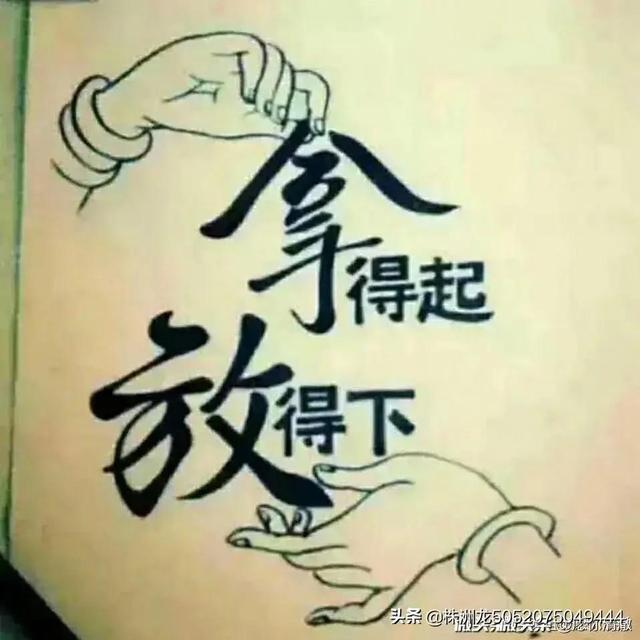 拿得起
放得下
头条 @株洲龙5052075049444